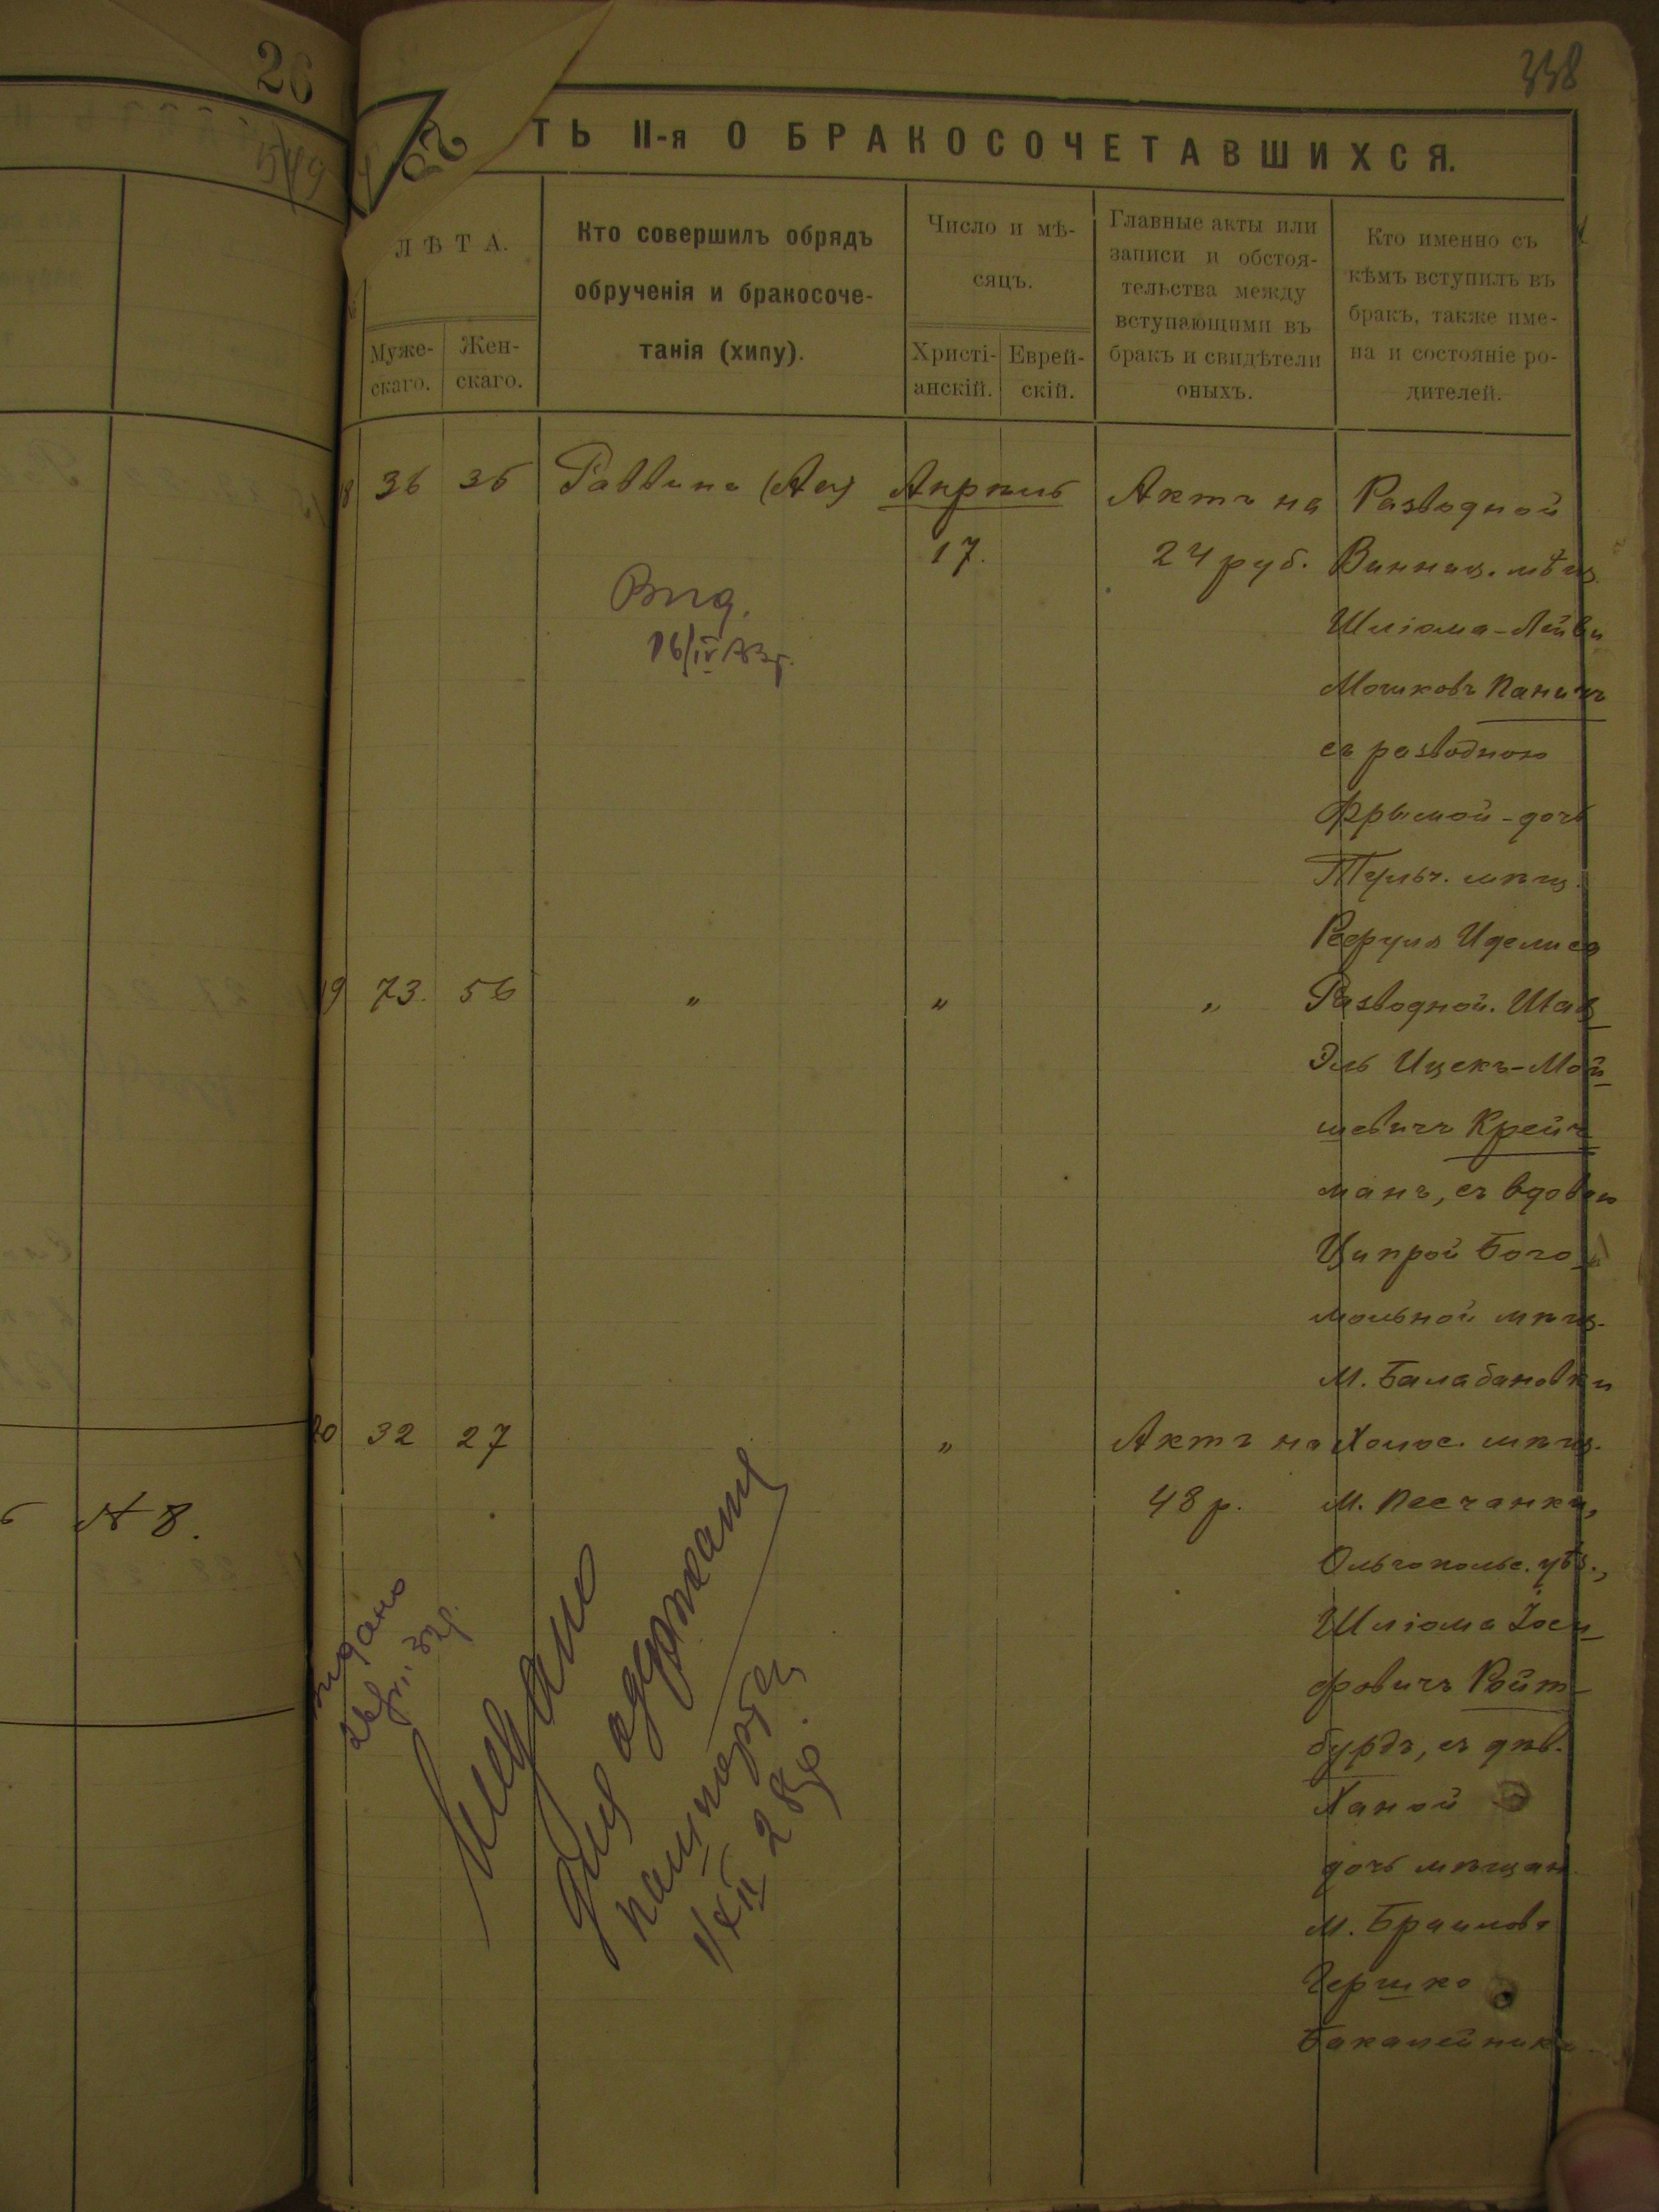 26
338
ТЬ II-я О БРАКОСОЧЕТАВШИХСЯ.
ЛѢТА.
Муже-
скаго.
Жен-
скаго.
Кто совершилъ обрядъ
обрученія и бракосоче-
танія (хипу).
Число и мѣ-
сяцъ.
Христі-
анскій.
Еврей-
скій.
Главные акты или
записи и обстоя-
тельства между
вступающими въ
бракъ и свидѣтели
оныхъ.
Кто именно съ
кѣмъ вступилъ въ
бракъ, также име-
на и состояніе ро-
дителей.
18 36 35 Раввинъ Апрѣль Актъ на Разводной
17. 24 руб. Винниц. мѣщ.
Шліома-Лейви
Мошковъ Паничъ
съ разводною
Фрымой-дочь
Тульч. мѣщ.
19 73. 56 " " " Разводной. Шав
Эль Ицекъ-Мой
шевичъ Крейч
манъ, съ вдовою
Ципрой Бого
мольной мѣщ.
М. Балабановки
20 32 27 " Актъ на Холос. мѣщ.
48 р. М. Песчанки,
Ольгопольс. уѣз.,
Шліома Іоси
фовичъ Ройт
бурдъ, съ дѣв.
Ханой
дочь мѣщан.
М. Браилова
Гершко
Бакалейника
Вид.
16/IV
видано
Видано
для одержания
пашпорта
1/XII 28р.
N 8.